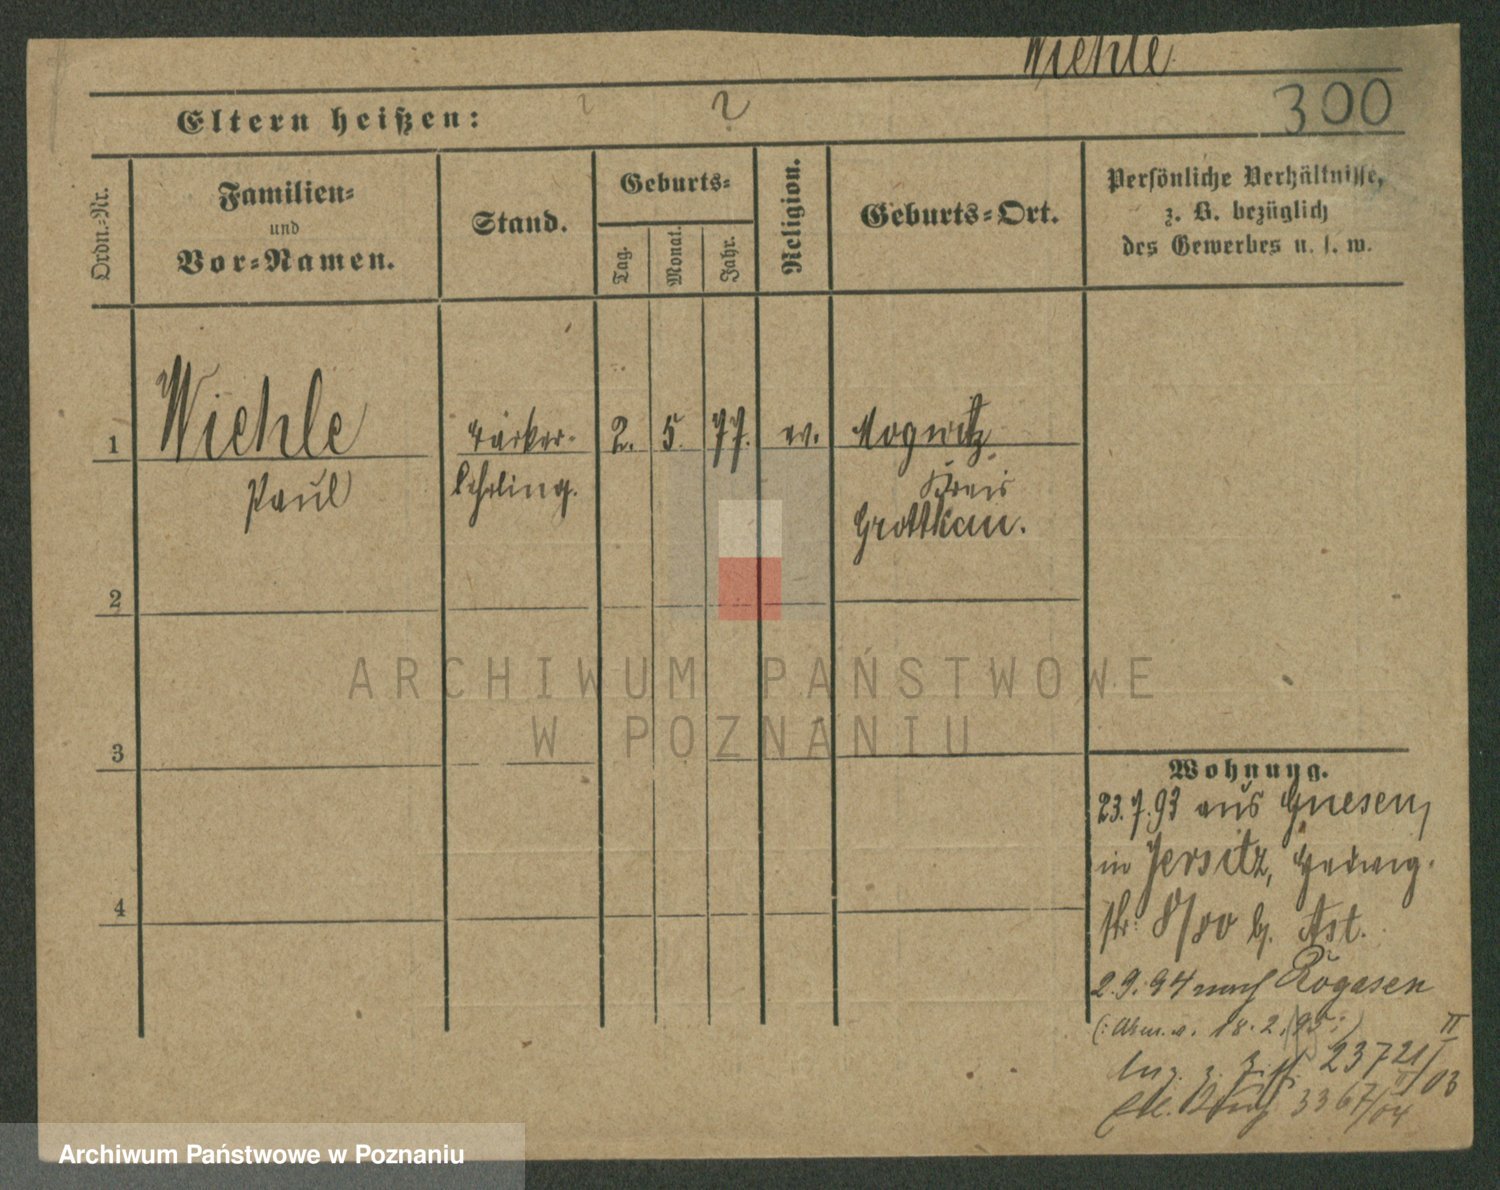 Wiehle
300
Eltern heißen: ?
Ordn.-Nr.
Familien-
und
Vor-Namen.
Stand.
Geburts-
Tag.
Monat.
Jahr.
Religion.
Geburts-Ort.
Persönliche Verhältnisse,
z. B. bezüglich
des Gewerbes u. s. w.
1 Wiehle 2. 5. 77. ev. Mogwitz
Paul lehrling. Kreis
Grottkau.
2
3
4
ARCHIWUM PAŃSTWOWE
W POZNANIU
Wohnung.
23.7.93 aus Gnesen,
in Jersitz, Hedwig-
str. 8/80 b. Ast.
2.9.94 nach Rogasen
18.2.95
II
23721/03
3367/04
Archiwum Państwowe w Poznaniu